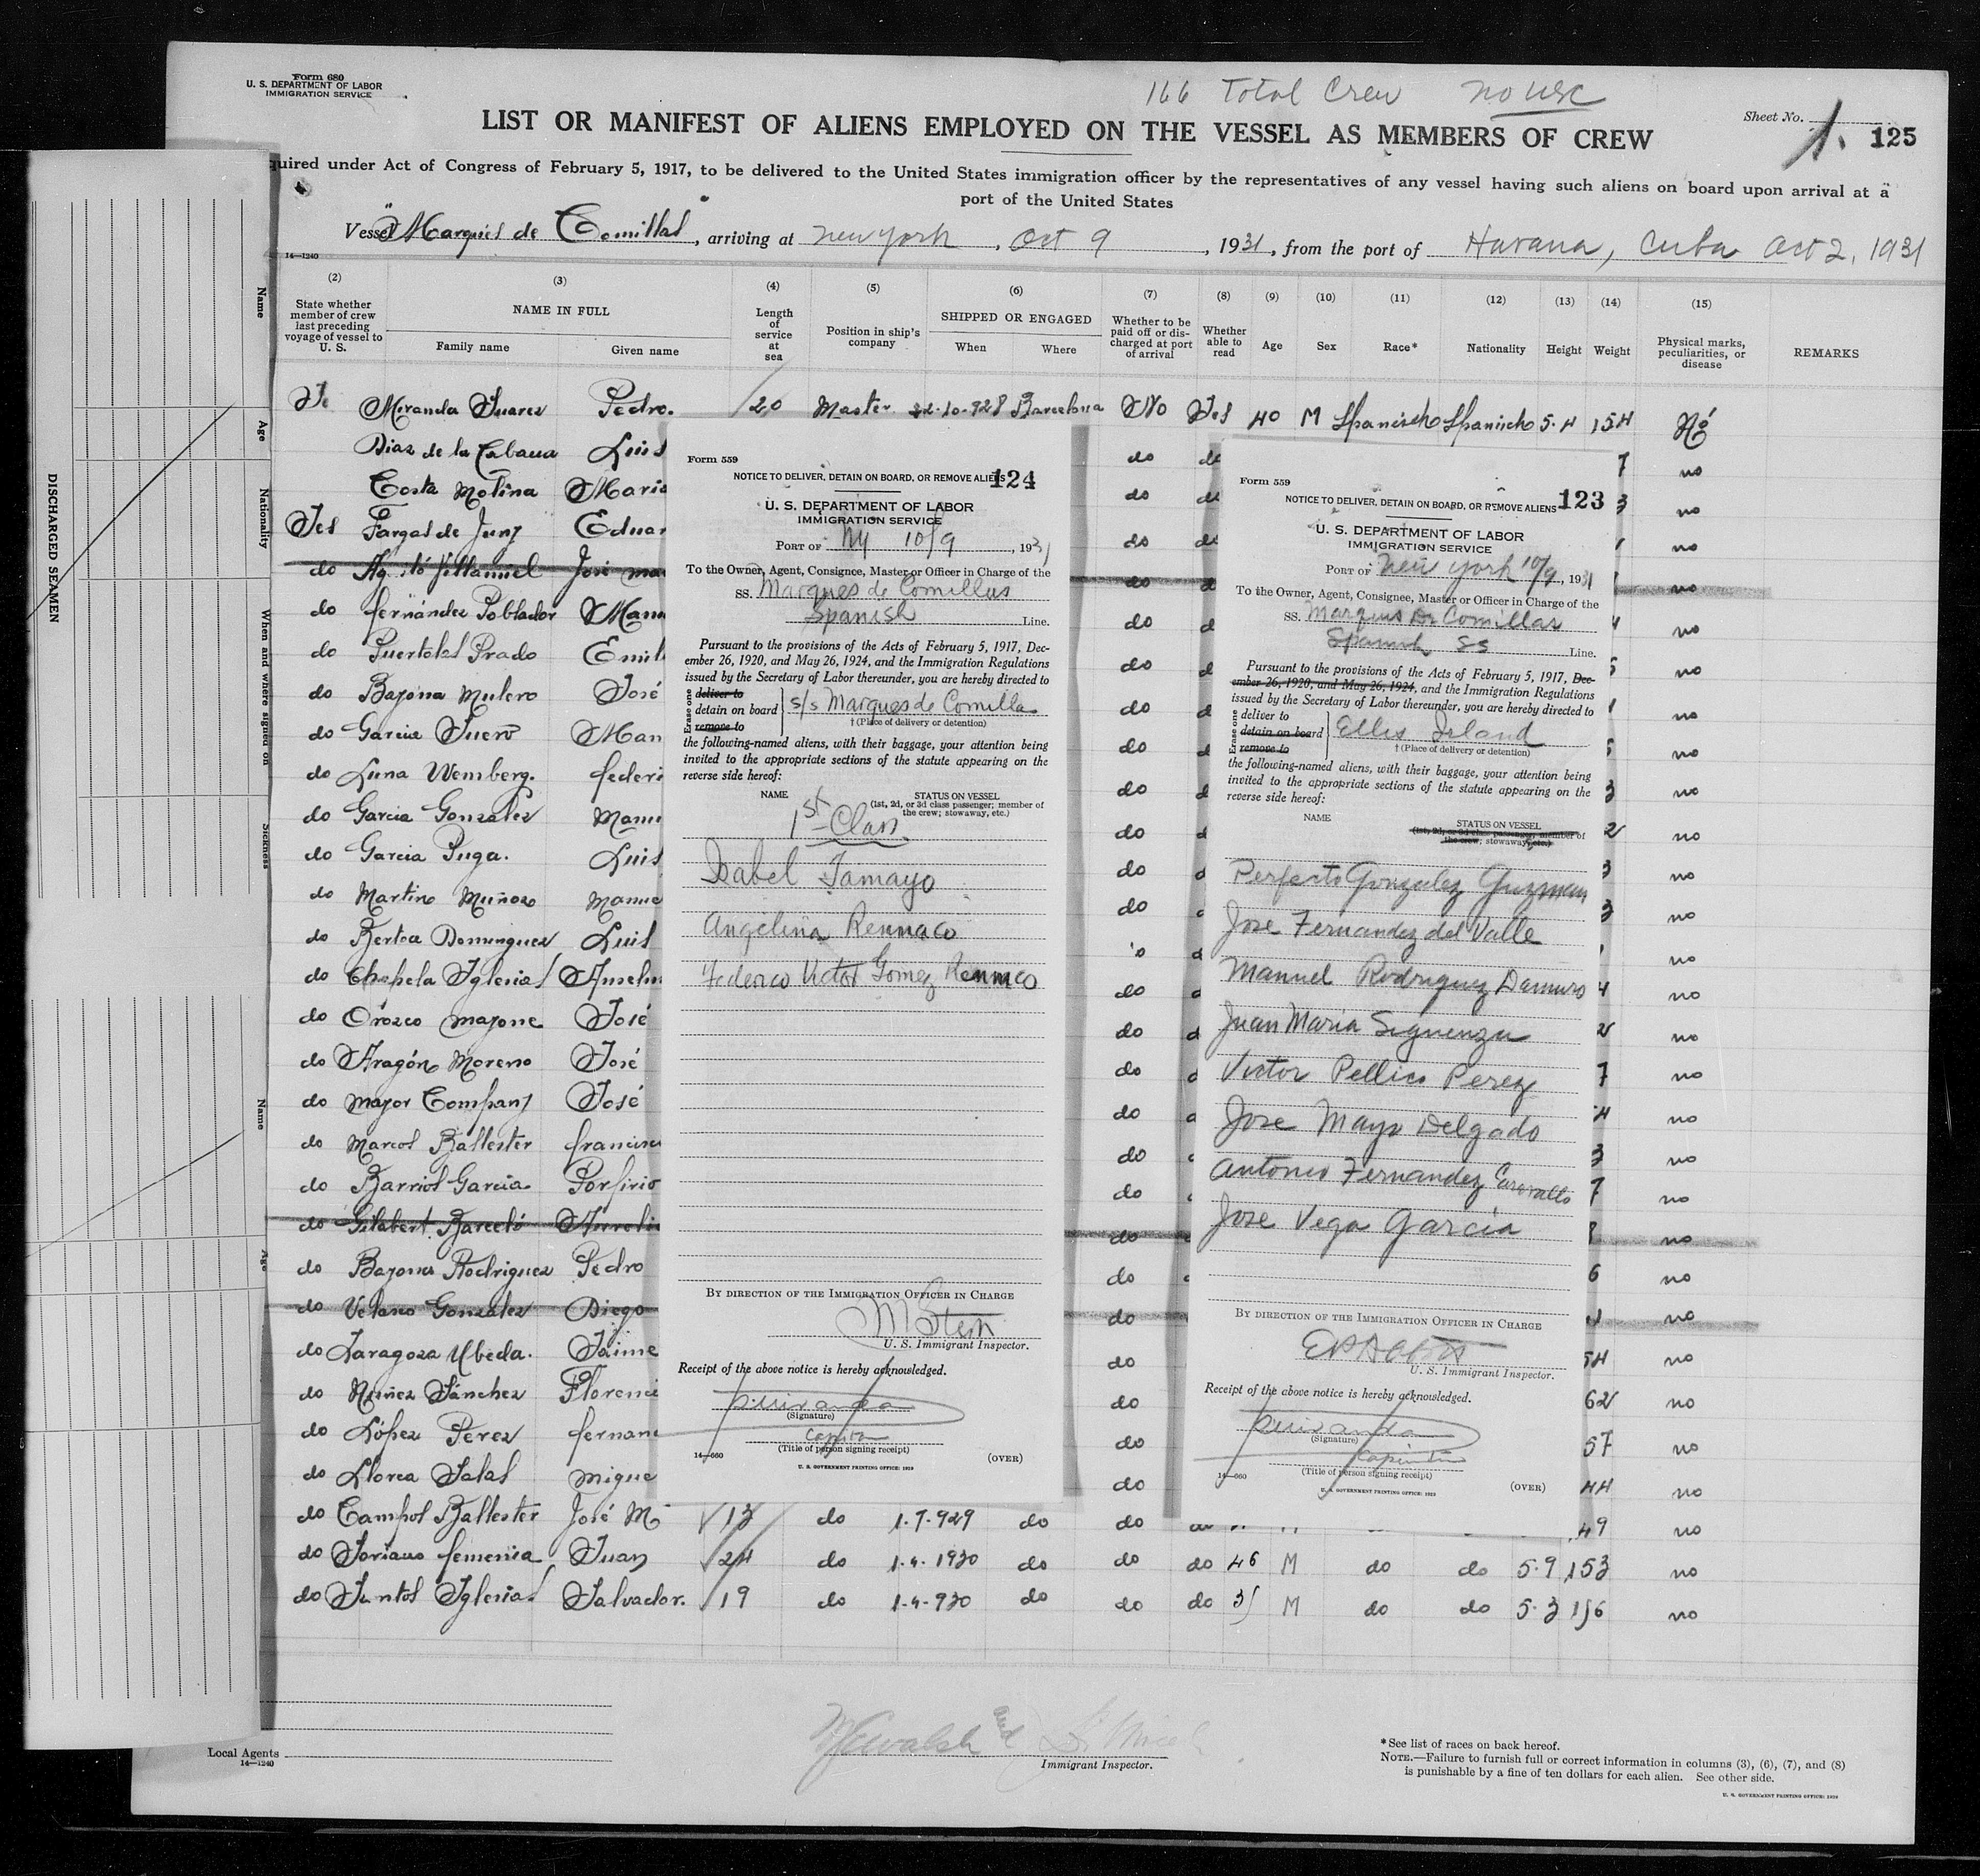 Form 680
U. S. DEPARTMENT OF LABOR
IMMIGRATION SERVICE
166 Total Crew no USC
Sheet No. 1. 125
LIST OR MANIFEST OF ALIENS EMPLOYED ON THE VESSEL AS MEMBERS OF CREW
quired under Act of Congress of February 5, 1917, to be delivered to the United States immigration officer by the representatives of any vessel having such aliens on board upon arrival at a
port of the United States
Vessel "Marqués de Comillas", arriving at New York, Oct 9, 1931, from the port of Havana, Cuba Oct 2, 1931
14—1240
(2) (3) (4) (5) (6) (7) (8) (9) (10) (11) (12) (13) (14) (15)
State whether member of crew last preceding voyage of vessel to U. S.
NAME IN FULL
Family name Given name
Length of service at sea
Position in ship's company
SHIPPED OR ENGAGED
When Where
Whether to be paid off or discharged at port of arrival
Whether able to read
Age Sex Race* Nationality Height Weight
Physical marks, peculiarities, or disease
REMARKS
Miranda Suarez Pedro. 20 Master 22-10-928 Barcelona No Yes 40 M Spanisch Spanisch 5.4 154 No
Diaz de la Luis do no
Costa Molina Maria do no
Yes Fargas de Juny Eduar do no
do Villamiel José ma do no
do fernández Poblador Manu do no
do Puertolas Prado Emil do no
do Bayona Mulero José do no
do Garcia Suero Man do no
do Luna Wemberg. federi do no
do Garcia Gonzalez Manu do no
do Garcia Puga. Luis do no
do Martino Muñoz Manue do no
do Bertoa Dominguez Luis no
do Chapela Iglesias Anselm do no
do Orozco Mayone José do no
do Aragón Moreno José do no
do Mayor Company José do no
do Marcos Ballester francisc do no
do Barrios Garcia Porfirio do no
do Gilabert Barceló Aurelio do no
do Bayona Rodriguez Pedro do no
do Velasco Gonzalez Diego do no
do Zaragoza Ubeda. Jaime do no
do Núñez Sánchez Florenci do no
do López Perez fernan do no
do Llorca Salas Migue do no
do Campos Ballester José Mª 13 do 1-7-929 do do no
do Soriano femenia Juan 24 do 1-4-1930 do do do 46 M do do 5.9 153 no
do Santos Iglesias Salvador. 19 do 1-4-930 do do do 35 M do do 5.3 156 no
Local Agents
14—1240
Immigrant Inspector.
*See list of races on back hereof.
NOTE.—Failure to furnish full or correct information in columns (3), (6), (7), and (8)
is punishable by a fine of ten dollars for each alien. See other side.
U. S. GOVERNMENT PRINTING OFFICE: 1929
DISCHARGED SEAMEN
Name
Age
Nationality
When and where signed on
Sickness
Name
Age
Form 559
NOTICE TO DELIVER, DETAIN ON BOARD, OR REMOVE ALIENS 124
U. S. DEPARTMENT OF LABOR
IMMIGRATION SERVICE
PORT OF NY 10/9, 1931
To the Owner, Agent, Consignee, Master or Officer in Charge of the
SS. Marques de Comillas
Spanish Line.
Pursuant to the provisions of the Acts of February 5, 1917, Dec-
ember 26, 1920, and May 26, 1924, and the Immigration Regulations
issued by the Secretary of Labor thereunder, you are hereby directed to
Erase one
deliver to
detain on board s/s Marques de Comillas
remove to
† (Place of delivery or detention)
the following-named aliens, with their baggage, your attention being
invited to the appropriate sections of the statute appearing on the
reverse side hereof:
NAME STATUS ON VESSEL
(1st, 2d, or 3d class passenger; member of
the crew; stowaway, etc.)
1st Class
Isabel Tamayo
Angelina Rennaco
Federico Victor Gomez Rennaco
BY DIRECTION OF THE IMMIGRATION OFFICER IN CHARGE
M Stern
U. S. Immigrant Inspector.
Receipt of the above notice is hereby acknowledged.
(Signature)
(Title of person signing receipt)
14—660
(OVER)
U. S. GOVERNMENT PRINTING OFFICE: 1929
Form 559
NOTICE TO DELIVER, DETAIN ON BOARD, OR REMOVE ALIENS 123
U. S. DEPARTMENT OF LABOR
IMMIGRATION SERVICE
PORT OF New York 10/9, 1931
To the Owner, Agent, Consignee, Master or Officer in Charge of the
SS. Marquis De Comillas
Spanish SS Line.
Pursuant to the provisions of the Acts of February 5, 1917, Dec-
ember 26, 1920, and May 26, 1924, and the Immigration Regulations
issued by the Secretary of Labor thereunder, you are hereby directed to
Erase one
deliver to
detain on board Ellis Island
remove to
† (Place of delivery or detention)
the following-named aliens, with their baggage, your attention being
invited to the appropriate sections of the statute appearing on the
reverse side hereof:
NAME STATUS ON VESSEL
(1st, 2d, or 3d class passenger, member of
the crew; stowaway, etc.)
Perfecto Gonzalez Guzman
Jose Fernandez del Valle
Manuel Rodriguez Damuro
Juan Maria Siguenza
Victor Pellico Perez
Jose Mayo Delgado
Antonio Fernandez
Jose Vega Garcia
BY DIRECTION OF THE IMMIGRATION OFFICER IN CHARGE
U. S. Immigrant Inspector.
Receipt of the above notice is hereby acknowledged.
(Signature)
(Title of person signing receipt)
14—660
(OVER)
U. S. GOVERNMENT PRINTING OFFICE: 1929